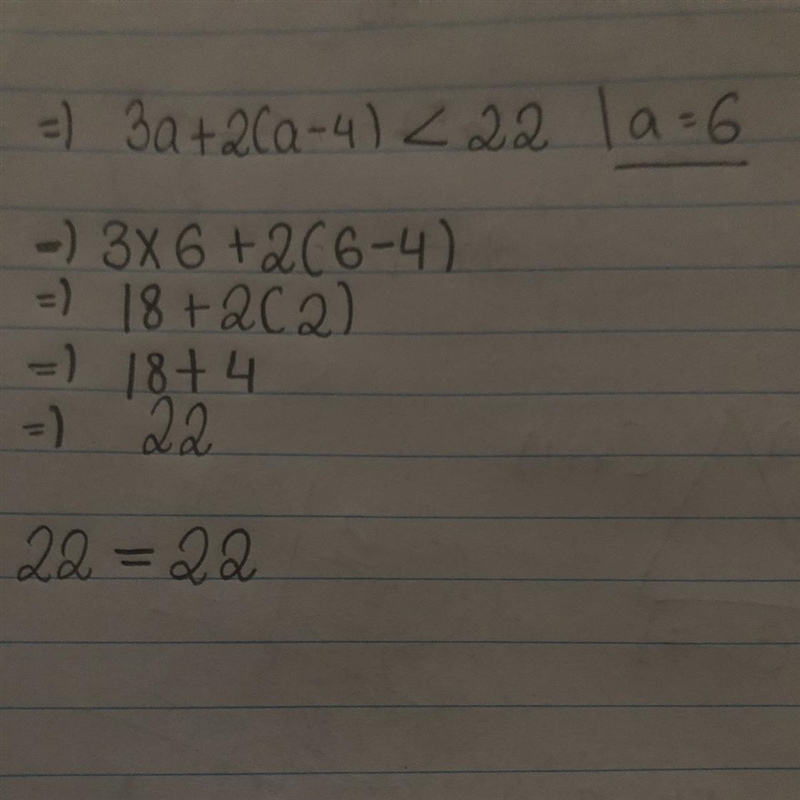 =) 3a+2(a-4) < 22 | a=6
-) 3×6+2(6-4)
=) 18+2(2)
=) 18+4
=) 22
22 = 22